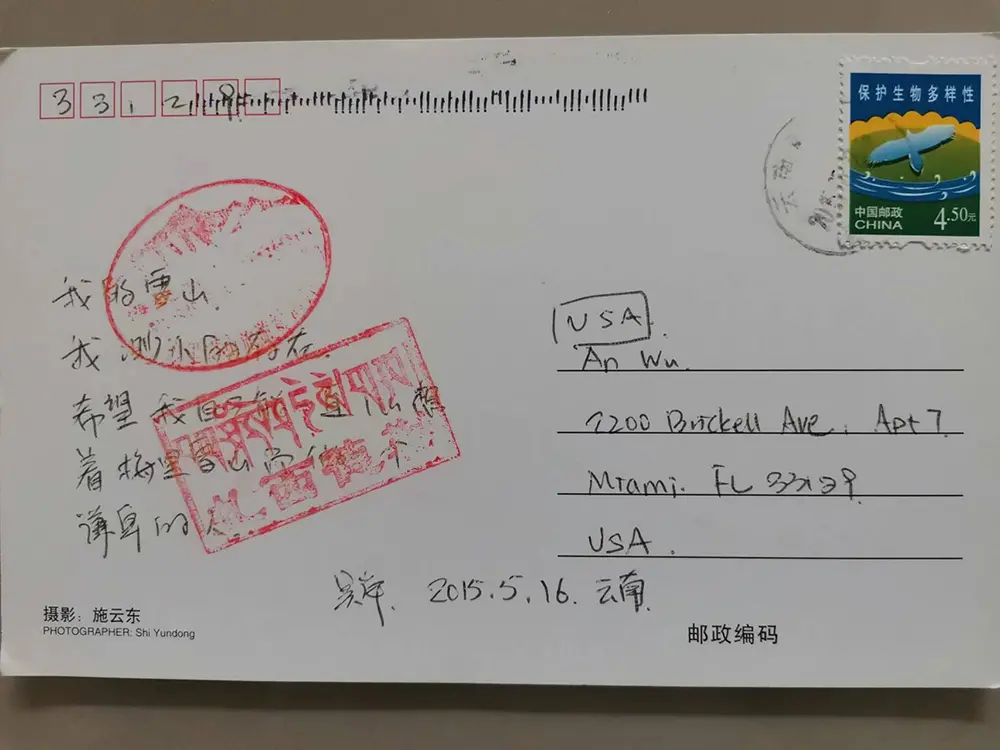 33129
保护生物多样性
中国邮政
CHINA
4.50元
云南
我的雪山
我 的存在.
希望我自 着
着梅里雪山 个
谦卑的人.
扎西德勒
USA.
An Wu.
2200 Brickell Ave. Apt 7
Miami. FL 33129.
USA.
吴岸. 2015.5.16. 云南.
摄影：施云东
PHOTOGRAPHER: Shi Yundong
邮政编码